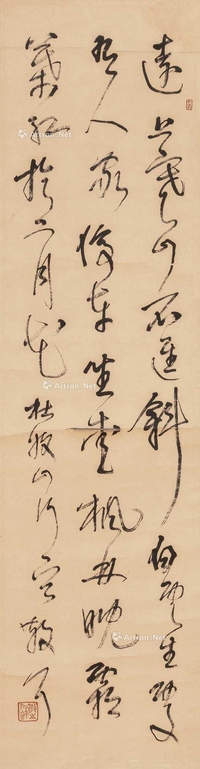 遠上寒山石逕斜白雲生處
有人家停車坐愛楓林晚霜
葉紅於二月花杜牧山行
Artron.Net
Artron.Net
Artron.Net